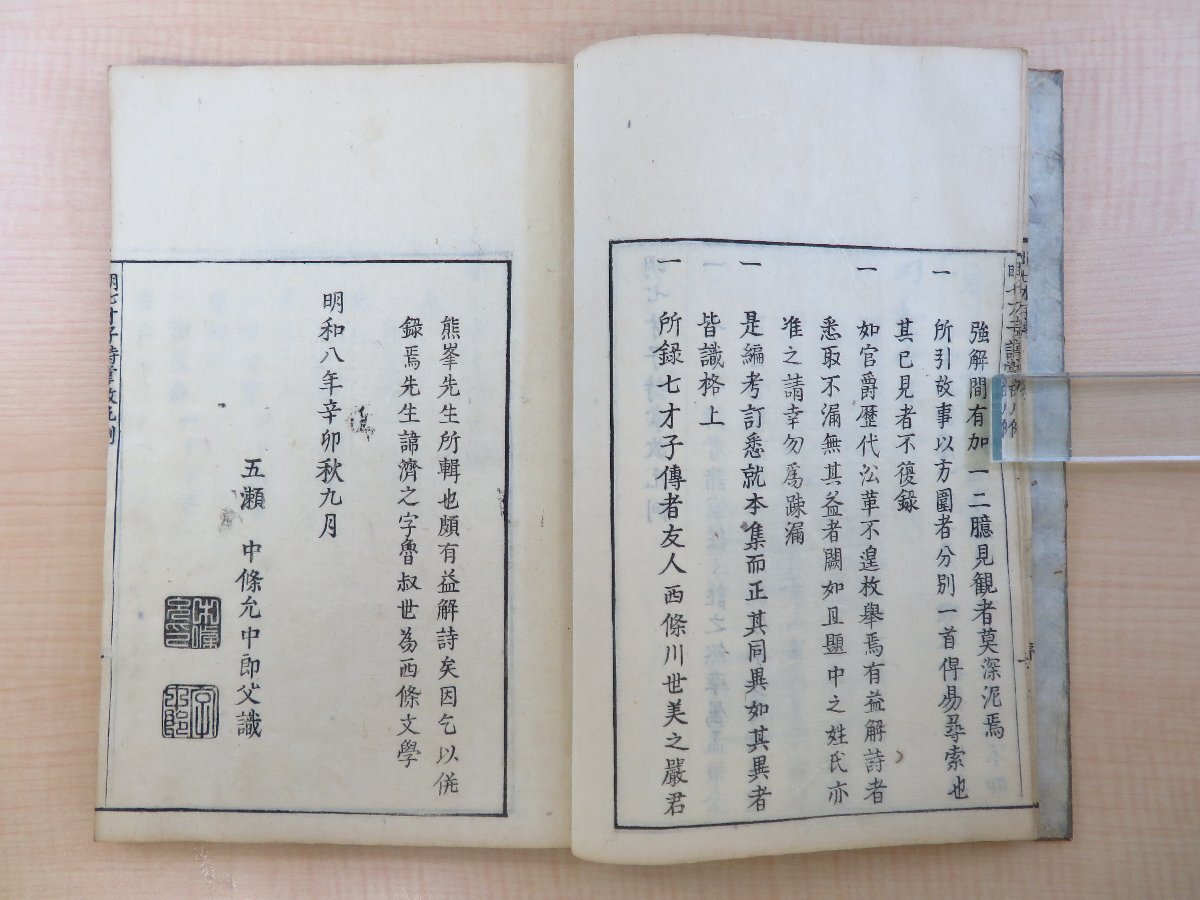 強解間有加一二臆見観者莫深泥焉
一 所引故事以方圍者分別一首俾易尋索也
其已見者不復録
一 如官爵歴代㳂革不遑枚擧焉有益解詩者
悉取不漏無其益者闕如且題中之姓氏亦
准之請幸勿爲踈漏
一 是編考訂悉就本集而正其同異如其異者
皆識格上
一 所錄七才子傳者友人西條川世美之嚴君
熊峯先生所輯也頗有益解詩矣因乞以併
録焉先生諱濟之字魯叔世為西條文學
明和八年辛卯秋九月
五瀬 中條允中郎父識